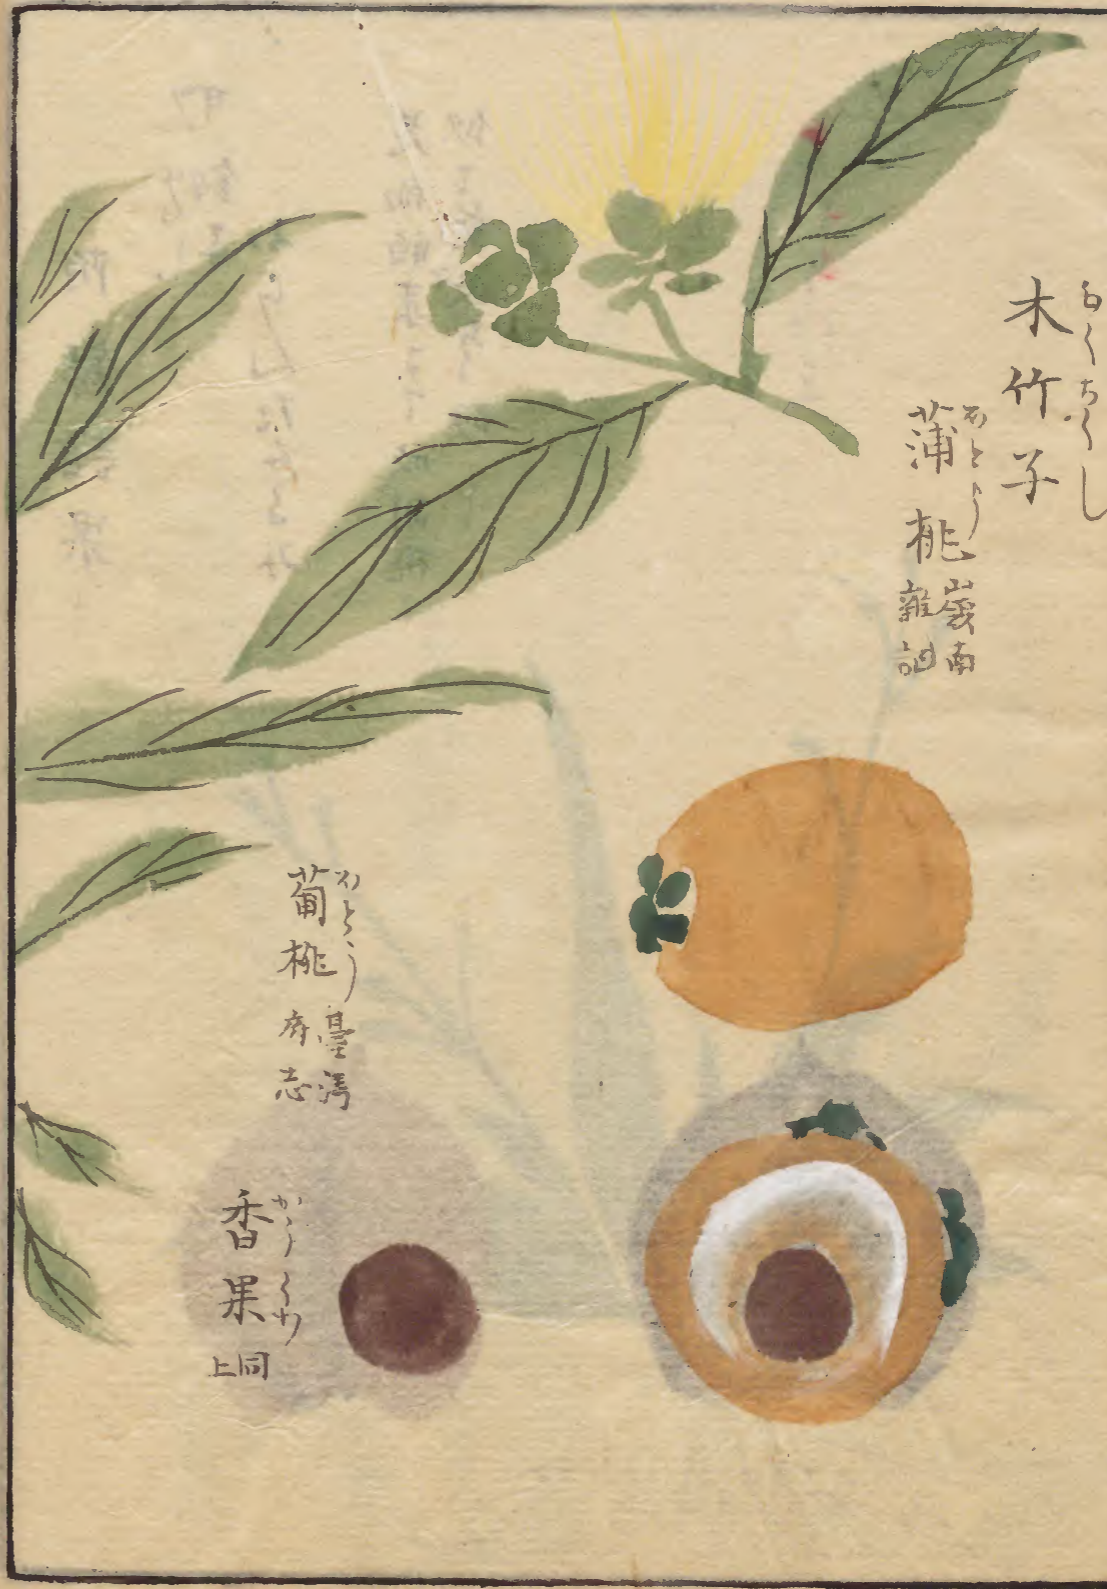 木竹子
もくちくし
蒲桃
ほとう
嶺南
雜記
葡桃
ほとう
臺湾
府志
香果
かうくわ
同上